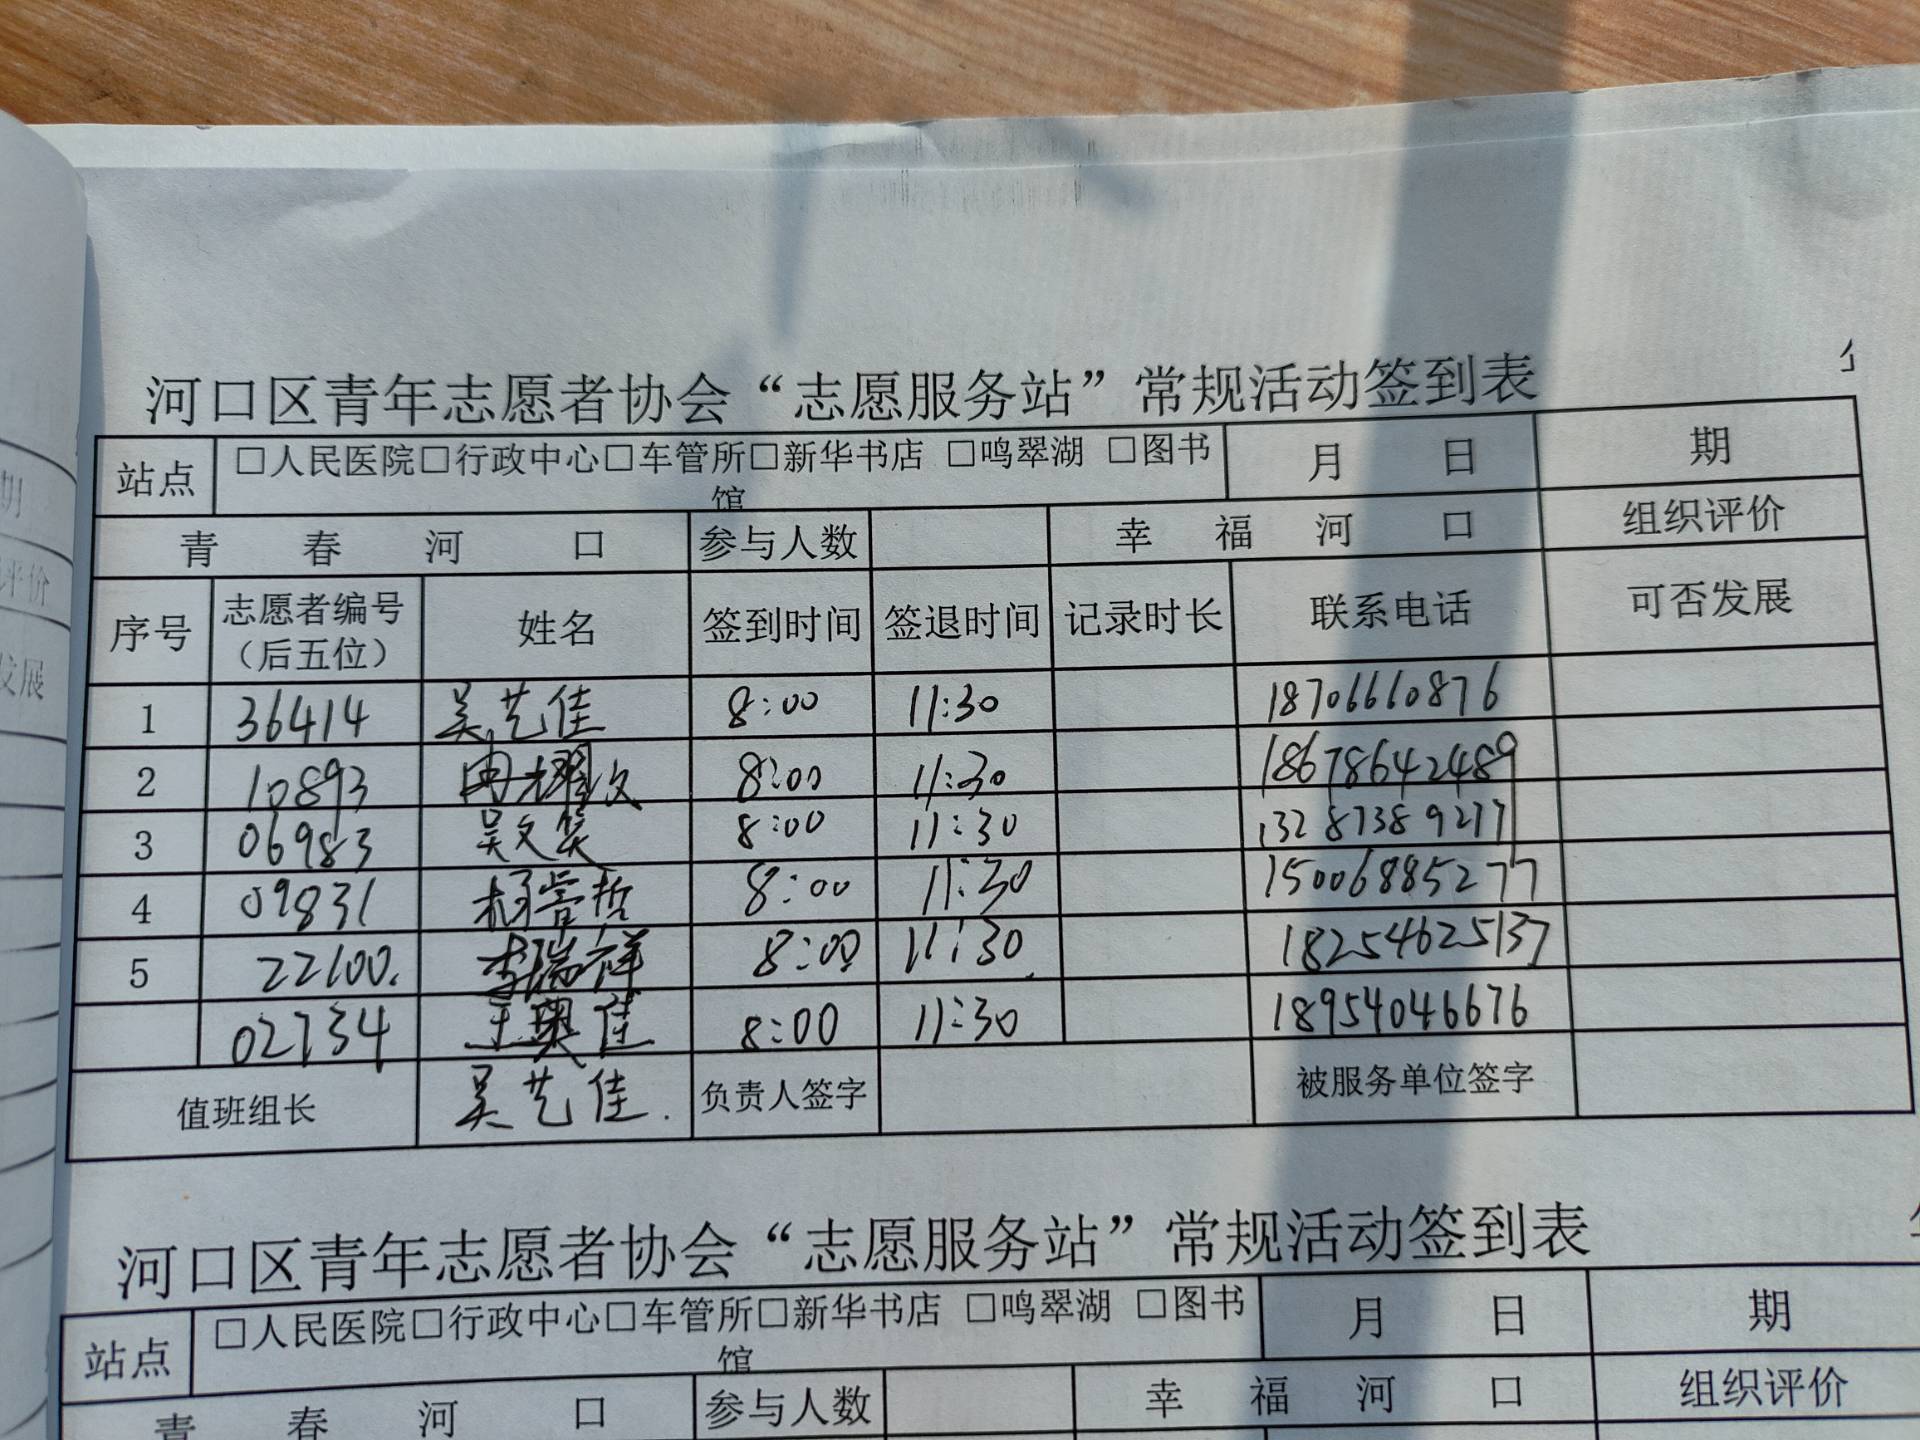 河口区青年志愿者协会“志愿服务站”常规活动签到表
站点 □人民医院□行政中心□车管所□新华书店 □鸣翠湖 □图书馆 月 日 期
青 春 河 口 参与人数 幸 福 河 口 组织评价
序号 志愿者编号（后五位） 姓名 签到时间 签退时间 记录时长 联系电话 可否发展
1 36414 吴艺佳 8:00 11:30 18706660876
2 10893 冉耀文 8:00 11:30 18678642489
3 06983 吴文笑 8:00 11:30 13287389277
4 09831 杨营哲 8:00 11:30 15006885277
5 22100. 李瑞祥 8:00 11:30 18254625137
02734 王奥佳 8:00 11:30 18954046676
值班组长 吴艺佳. 负责人签字 被服务单位签字
河口区青年志愿者协会“志愿服务站”常规活动签到表
站点 □人民医院□行政中心□车管所□新华书店 □鸣翠湖 □图书馆 月 日 期
青 春 河 口 参与人数 幸 福 河 口 组织评价